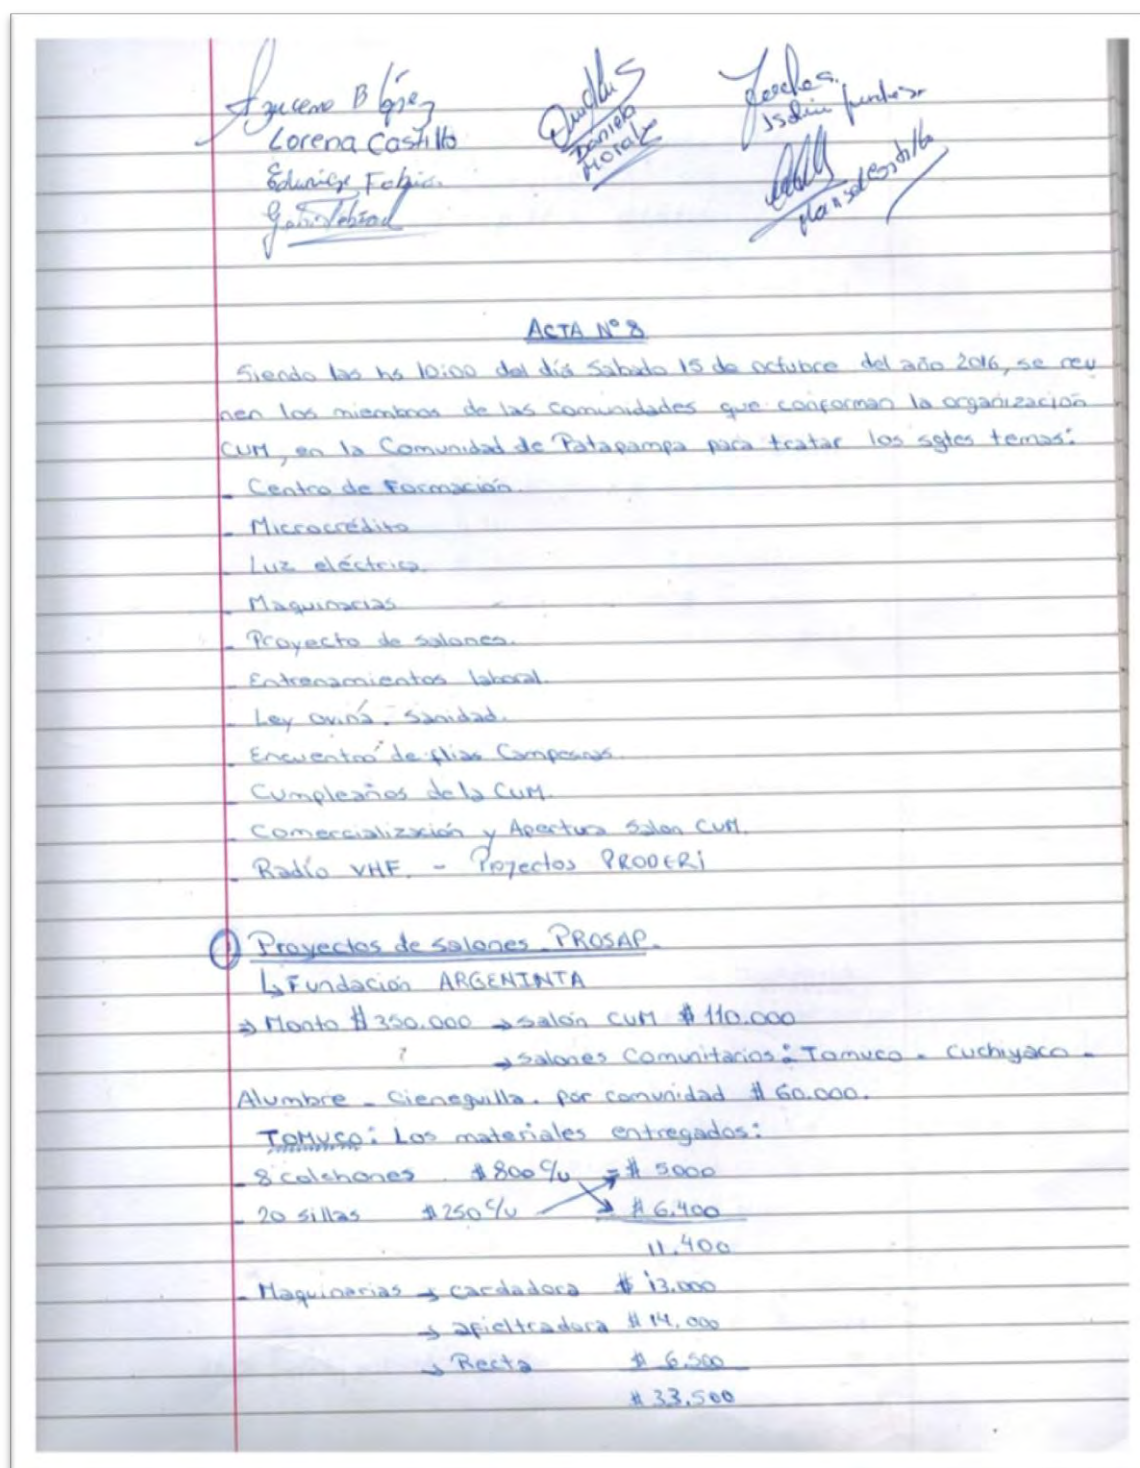 Azucena B López
Lorena Castillo
Daniela
Morales
ACTA N° 8
Siendo las hs 10:00 del día Sabado 15 de octubre del año 2016, se reu
nen los miembros de las comunidades que conforman la organización
CUM, en la Comunidad de Patapampa para tratar los sgtes temas:
- Centro de Formación.
- Microcrédito
- Luz eléctrica.
- Maquinarias
- Proyecto de salones.
- Entrenamientos laboral.
- Ley ovina. Sanidad.
- Encuentro de flias Campesinas.
- Cumpleaños de la CUM.
- Comercialización y Apertura Salon CUM.
- Radío VHF. - Proyectos PRODERI
Proyectos de salones. PROSAP.
↳ Fundación ARGENINTA
⇒ Monto $ 350.000 → salón CUM $ 110.000
→ salones Comunitarios: Tomuco - Cuchiyaco -
Alumbre - Cieneguilla. por comunidad $ 60.000.
TOMUCO: Los materiales entregados:
- 8 colchones $ 800 c/u = $ 5000
- 20 sillas $ 250 c/u $ 6.400
11.400
- Maquinarias → cardadora $ 13.000
→ afieltradora $ 14.000
→ Recta $ 6.500
$ 33.500